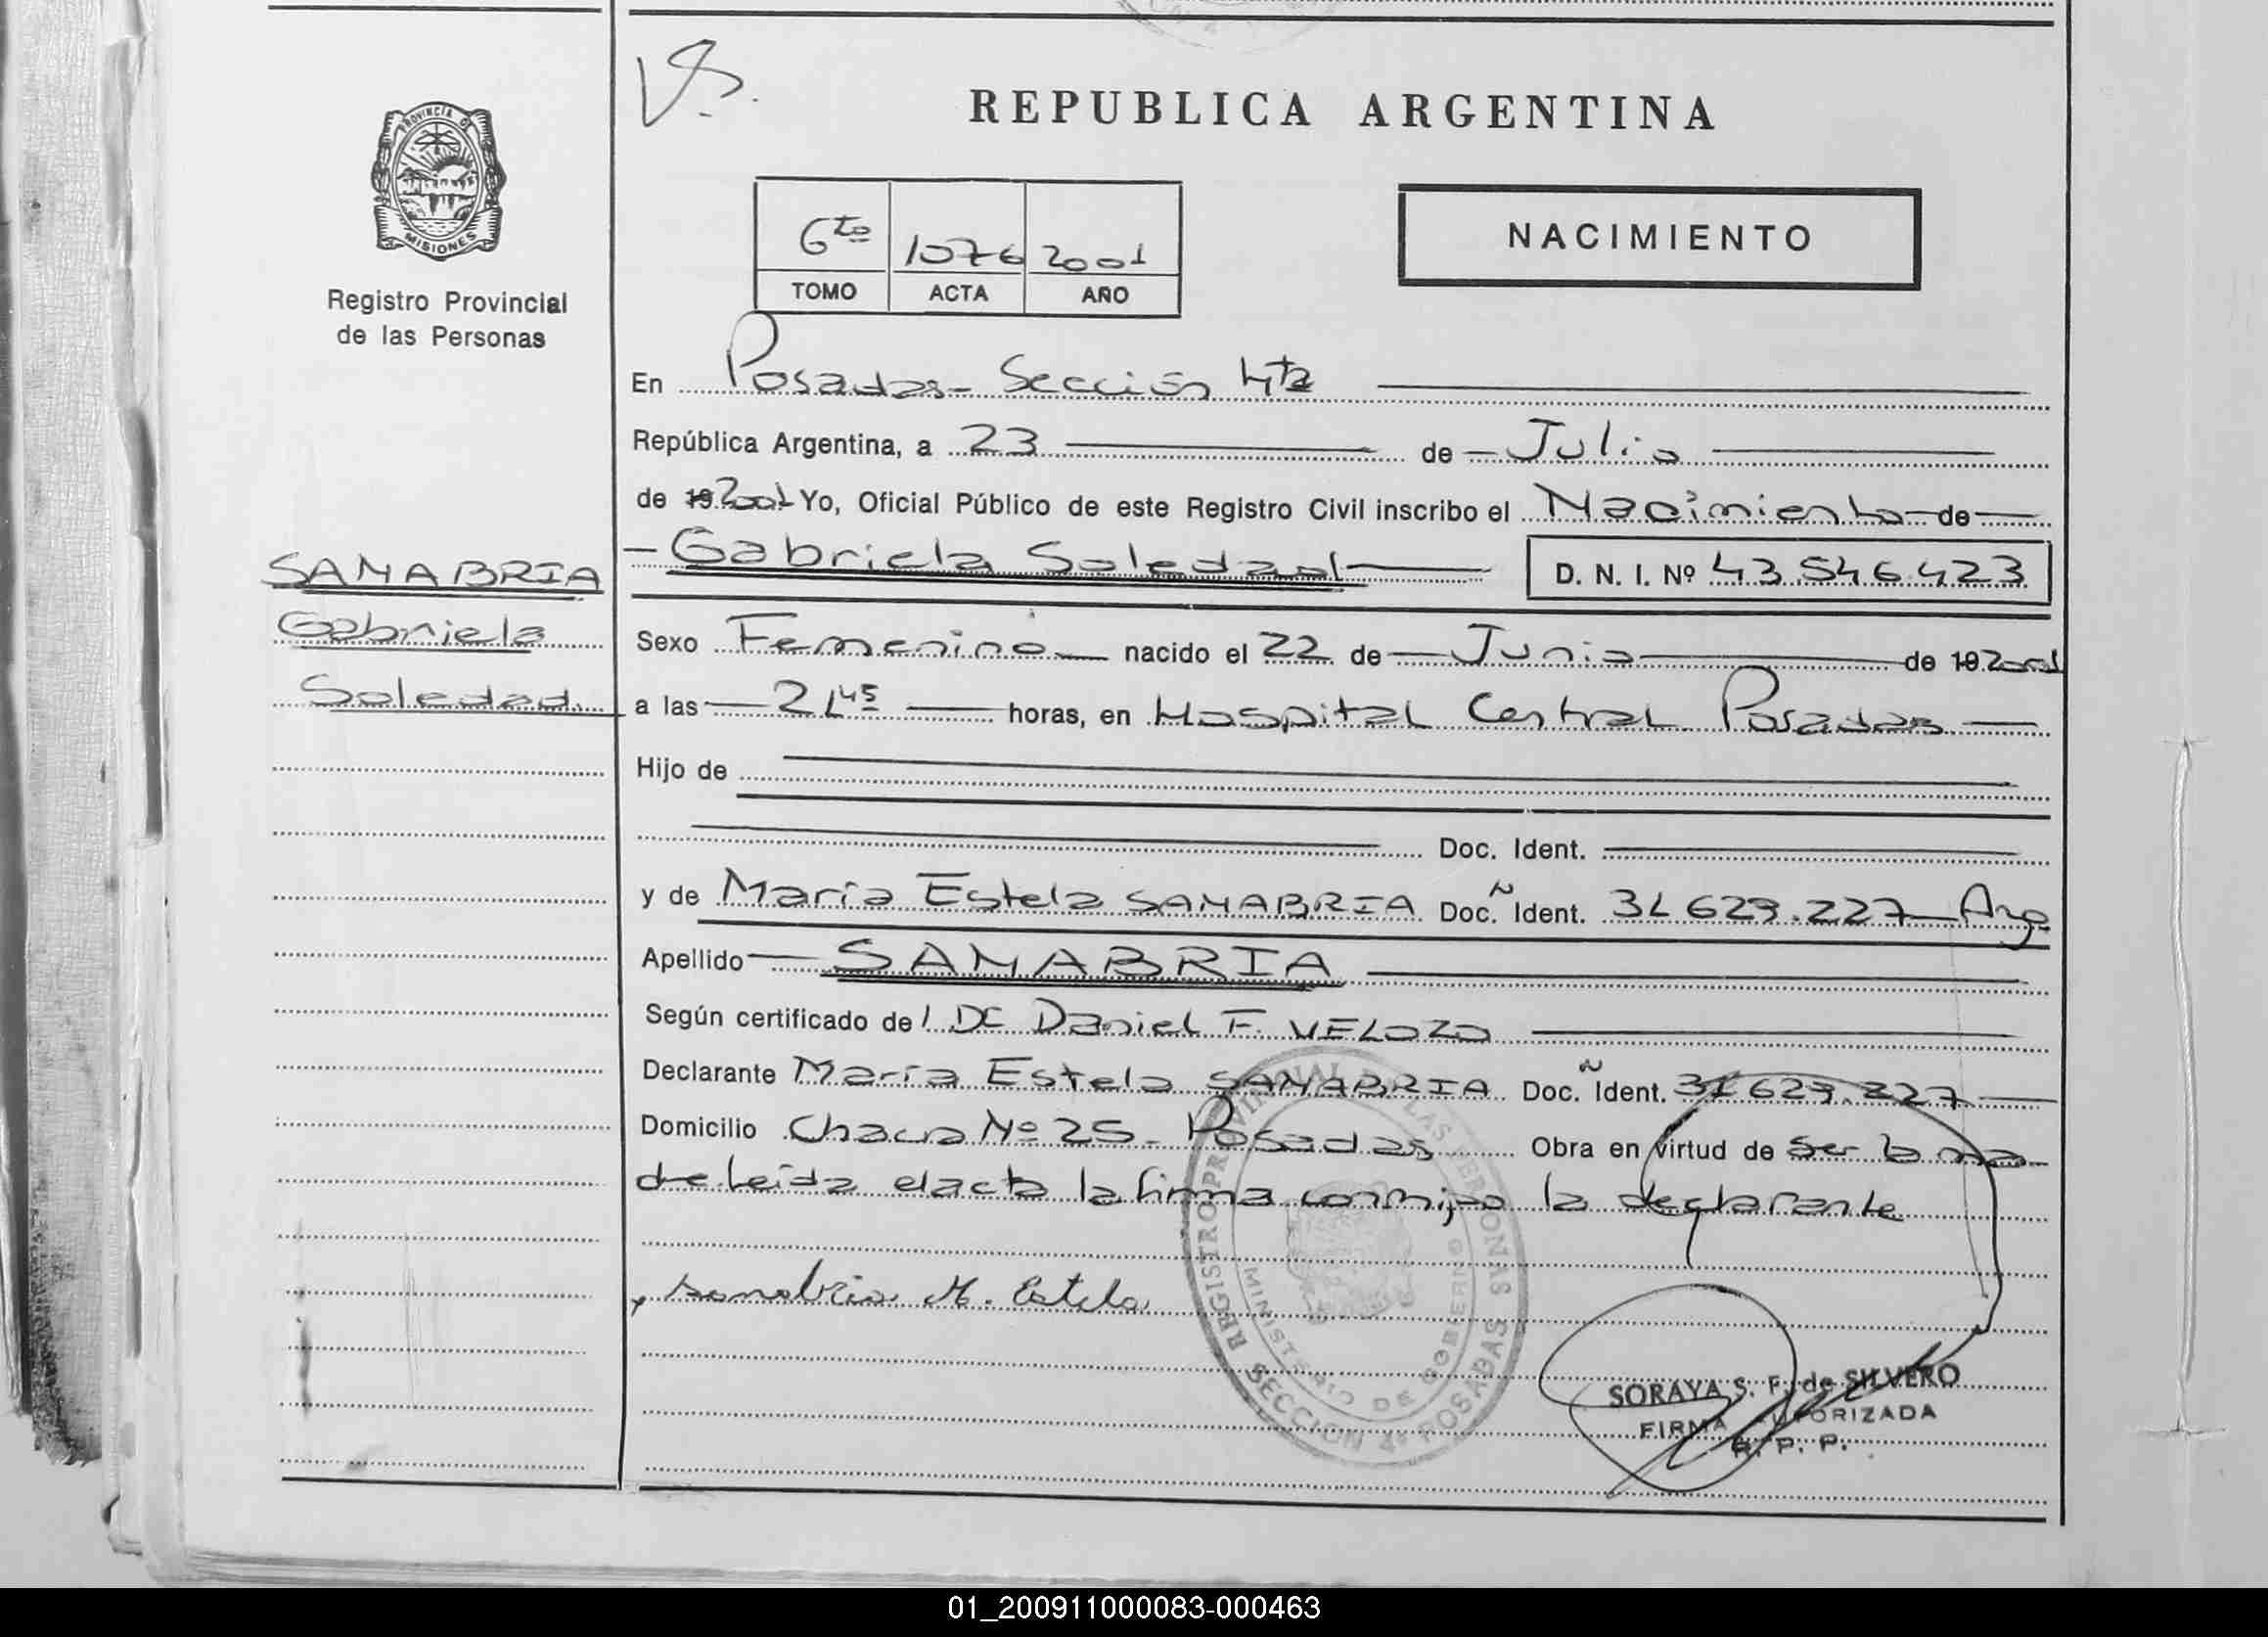 PROVINCIA DE
MISIONES
Registro Provincial
de las Personas
SANABRIA
Gabriela
Soledad.
VS.
REPUBLICA ARGENTINA
6to 1076 2001
TOMO ACTA AÑO
NACIMIENTO
En Posadas - Sección 4ta
República Argentina, a 23 de Julio
de 19 2001 Yo, Oficial Público de este Registro Civil inscribo el Nacimiento de
Gabriela Soledad D. N. I. Nº 43 546 423
Sexo Femenino nacido el 22 de Junio de 19 2001
a las 21 45 horas, en Hospital Central Posadas
Hijo de
Doc. Ident.
y de María Estela SANABRIA Doc. Ident. 31 629.227 Arg
Apellido SANABRIA
Según certificado de Daniel F. VELOZO
Declarante María Estela SANABRIA Doc. Ident. 31 629.227
Domicilio Chacra Nº 25 - Posadas Obra en virtud de ser la ma-
dre leida el acta la firma conmigo la declarante
Sanabria M. Estela
REGISTRO PROVINCIAL DE LAS PERSONAS
MINISTERIO DE GOBIERNO
SECCION 4ª POSADAS
SORAYA S. F. de SILVERO
FIRMA AUTORIZADA
R. P. P.
01_200911000083-000463